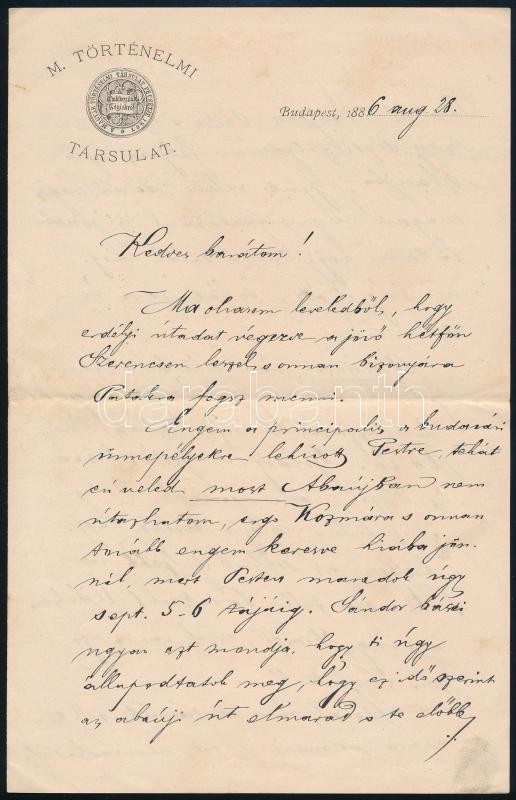 M. TÖRTÉNELMI
TÁRSULAT.
Budapest, 1886 aug 28.
Kedves barátom!
Ma olvasom leveledből, hogy
erdélyi útadat végezve a jövő hétfőn
Szerencsen leszel, s onnan bizonyára
Patakra fogsz menni.
Engem a principalis a budavári
ünnepélyekre lehívott Pestre, tehát
én veled most Abaújban nem
útazhatom, ergo Kozmára s onnan
tovább engem keresve hiába jön-
nél, mert Pesten maradok úgy
sept. 5-6 tájáig. Sándor bácsi
ugyan azt mondja, hogy ti úgy
állapodtatok meg, hogy ez idő szerint
az abaúji út elmarad s te előbb
darabanth